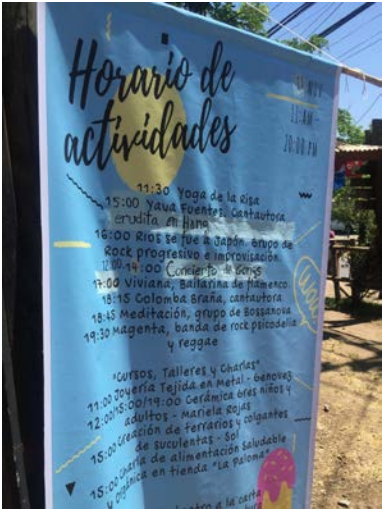 Horario de
actividades
NOV
11:AM -
20:00 PM
11:30 Yoga de la Risa
15:00 Yaya Fuentes. Cantautora
erudita en Hang
16:00 Rios se fue a Japón. Grupo de
Rock progresivo e improvisación.
Concierto de Gongs
17:00 Viviana, Bailarina de flamenco
18:15 Colomba Braña, cantautora
18:45 Meditación, grupo de Bossanova
19:30 Magenta, banda de rock psicodelia
y reggae
"Cursos, Talleres y Charlas"
11:00 Joyería Tejida en Metal - Genovez
12:00/15:00/19:00 Cerámica Gres niños y
adultos - Mariela Rojas
15:00 Creación de terrarios y colgantes
de suculentas - Sol
15:00 Charla de alimentación Saludable
y orgánica en tienda "La Paloma"
a la carta